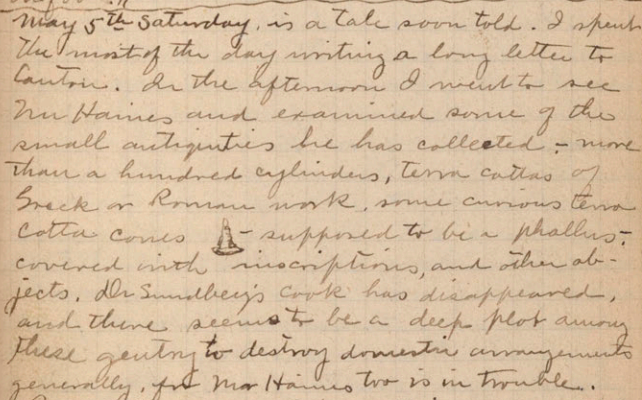 May 5th Saturday, is a tale soon told. I spent
the most of the day writing a long letter to
Canton. In the afternoon I went to see
Mr Haines and examined some of the
small antiquities he has collected - more
than a hundred cylinders, terra cottas of
Greek or Roman work, some curious terra
cotta cones - supposed to be a phallus -
covered with inscriptions, and other ob-
jects. Dr Sundberg's cook has disappeared,
and there seems to be a deep plot among
these gentry to destroy domestic arrangements
generally, for Mr Haines too is in trouble.